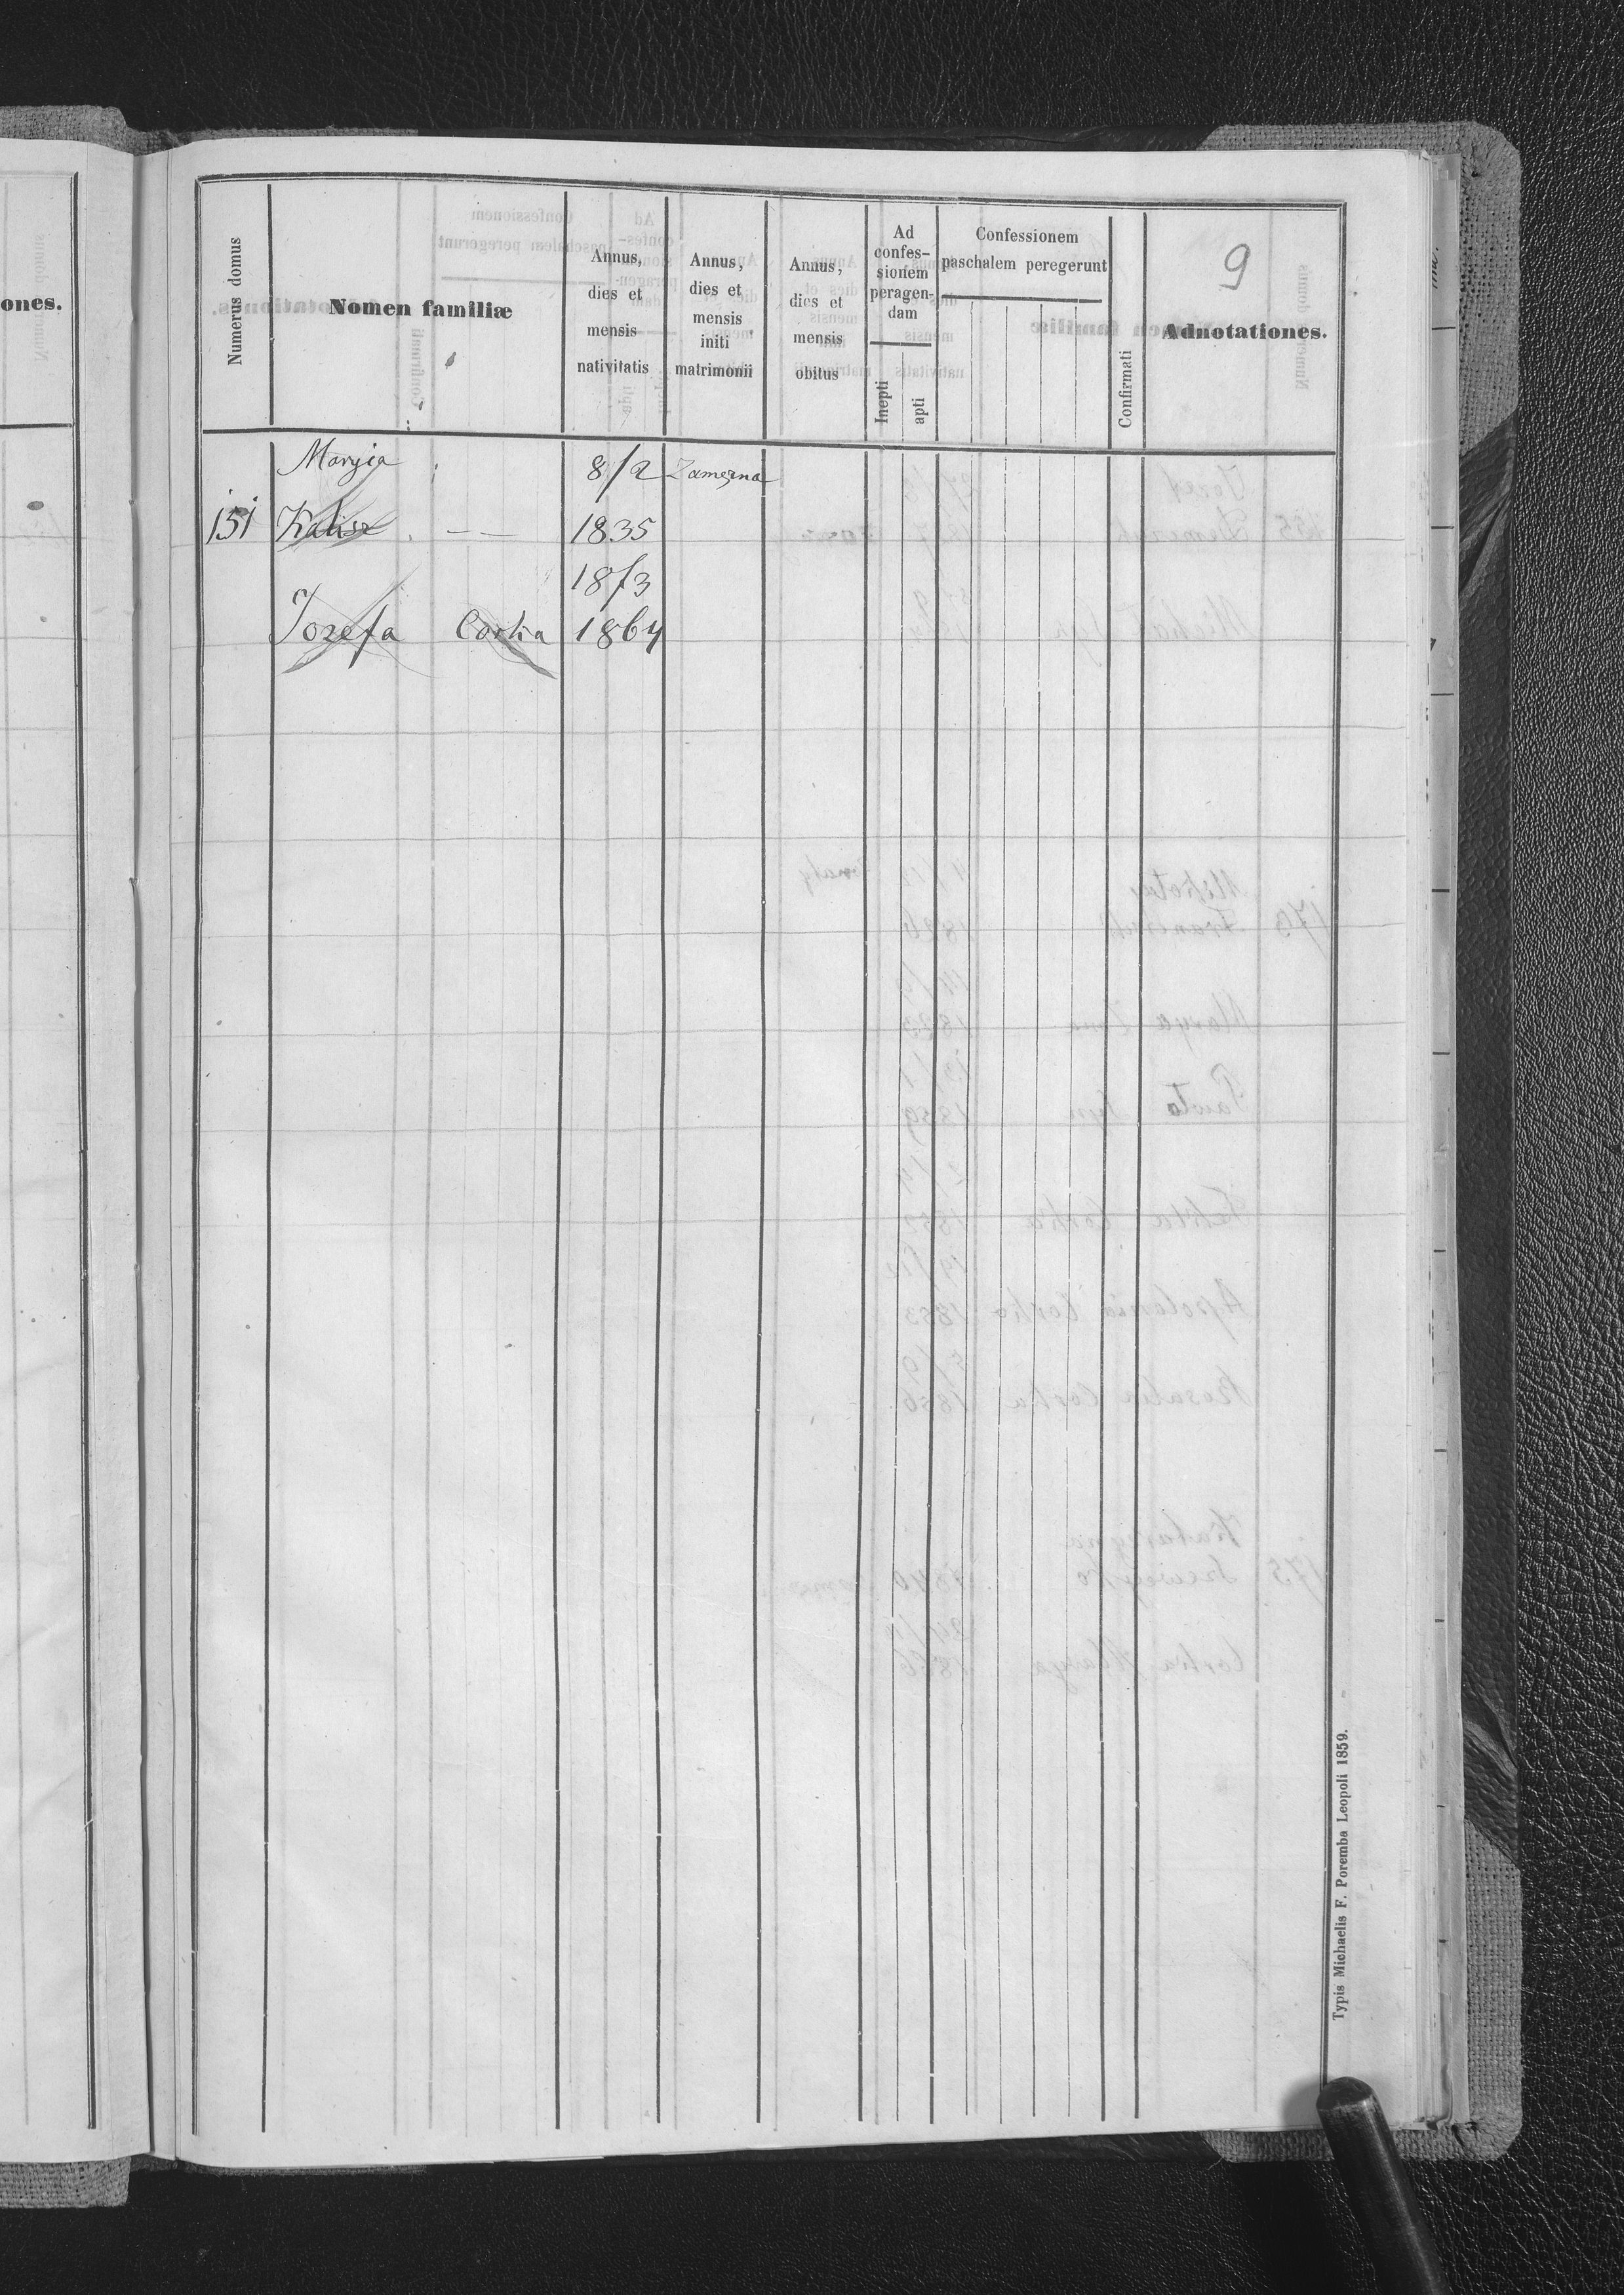 ones.
9
Numerus domus
Nomen familiæ
Annus,
dies et
mensis
nativitatis
Annus,
dies et
mensis
initi
matrimonii
Annus,
dies et
mensis
obitus
Ad
confes-
sionem
peragen-
dam
Inepti
apti
Confessionem
paschalem peregerunt
Confirmati
Adnotationes.
Maryia 8/2 Zamęzna
151 Kalisz — — 1835
18/3
Jozefa Corka 1864
Typis Michaelis F. Poremba Leopoli 1859.